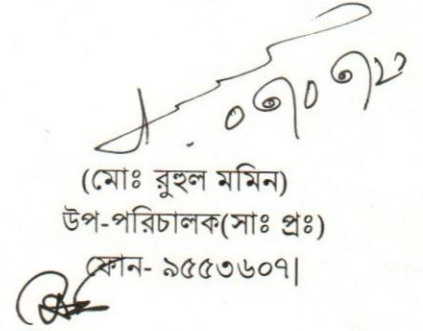 (মোঃ রুহুল মমিন)
উপ-পরিচালক(সাঃ প্রঃ)
ফোন- ৯৫৫৩৬০৭|